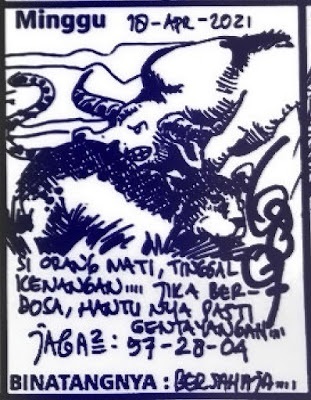 Minggu 18-APR-2021
SI ORANG MATI, TINGGAL
KENANGAN.... JIKA BER-
DOSA, HANTU NYA PASTI
GENTAYANGAN....
JAGA2 : 57-28-04
BINATANGNYA : BERSAHAJA....